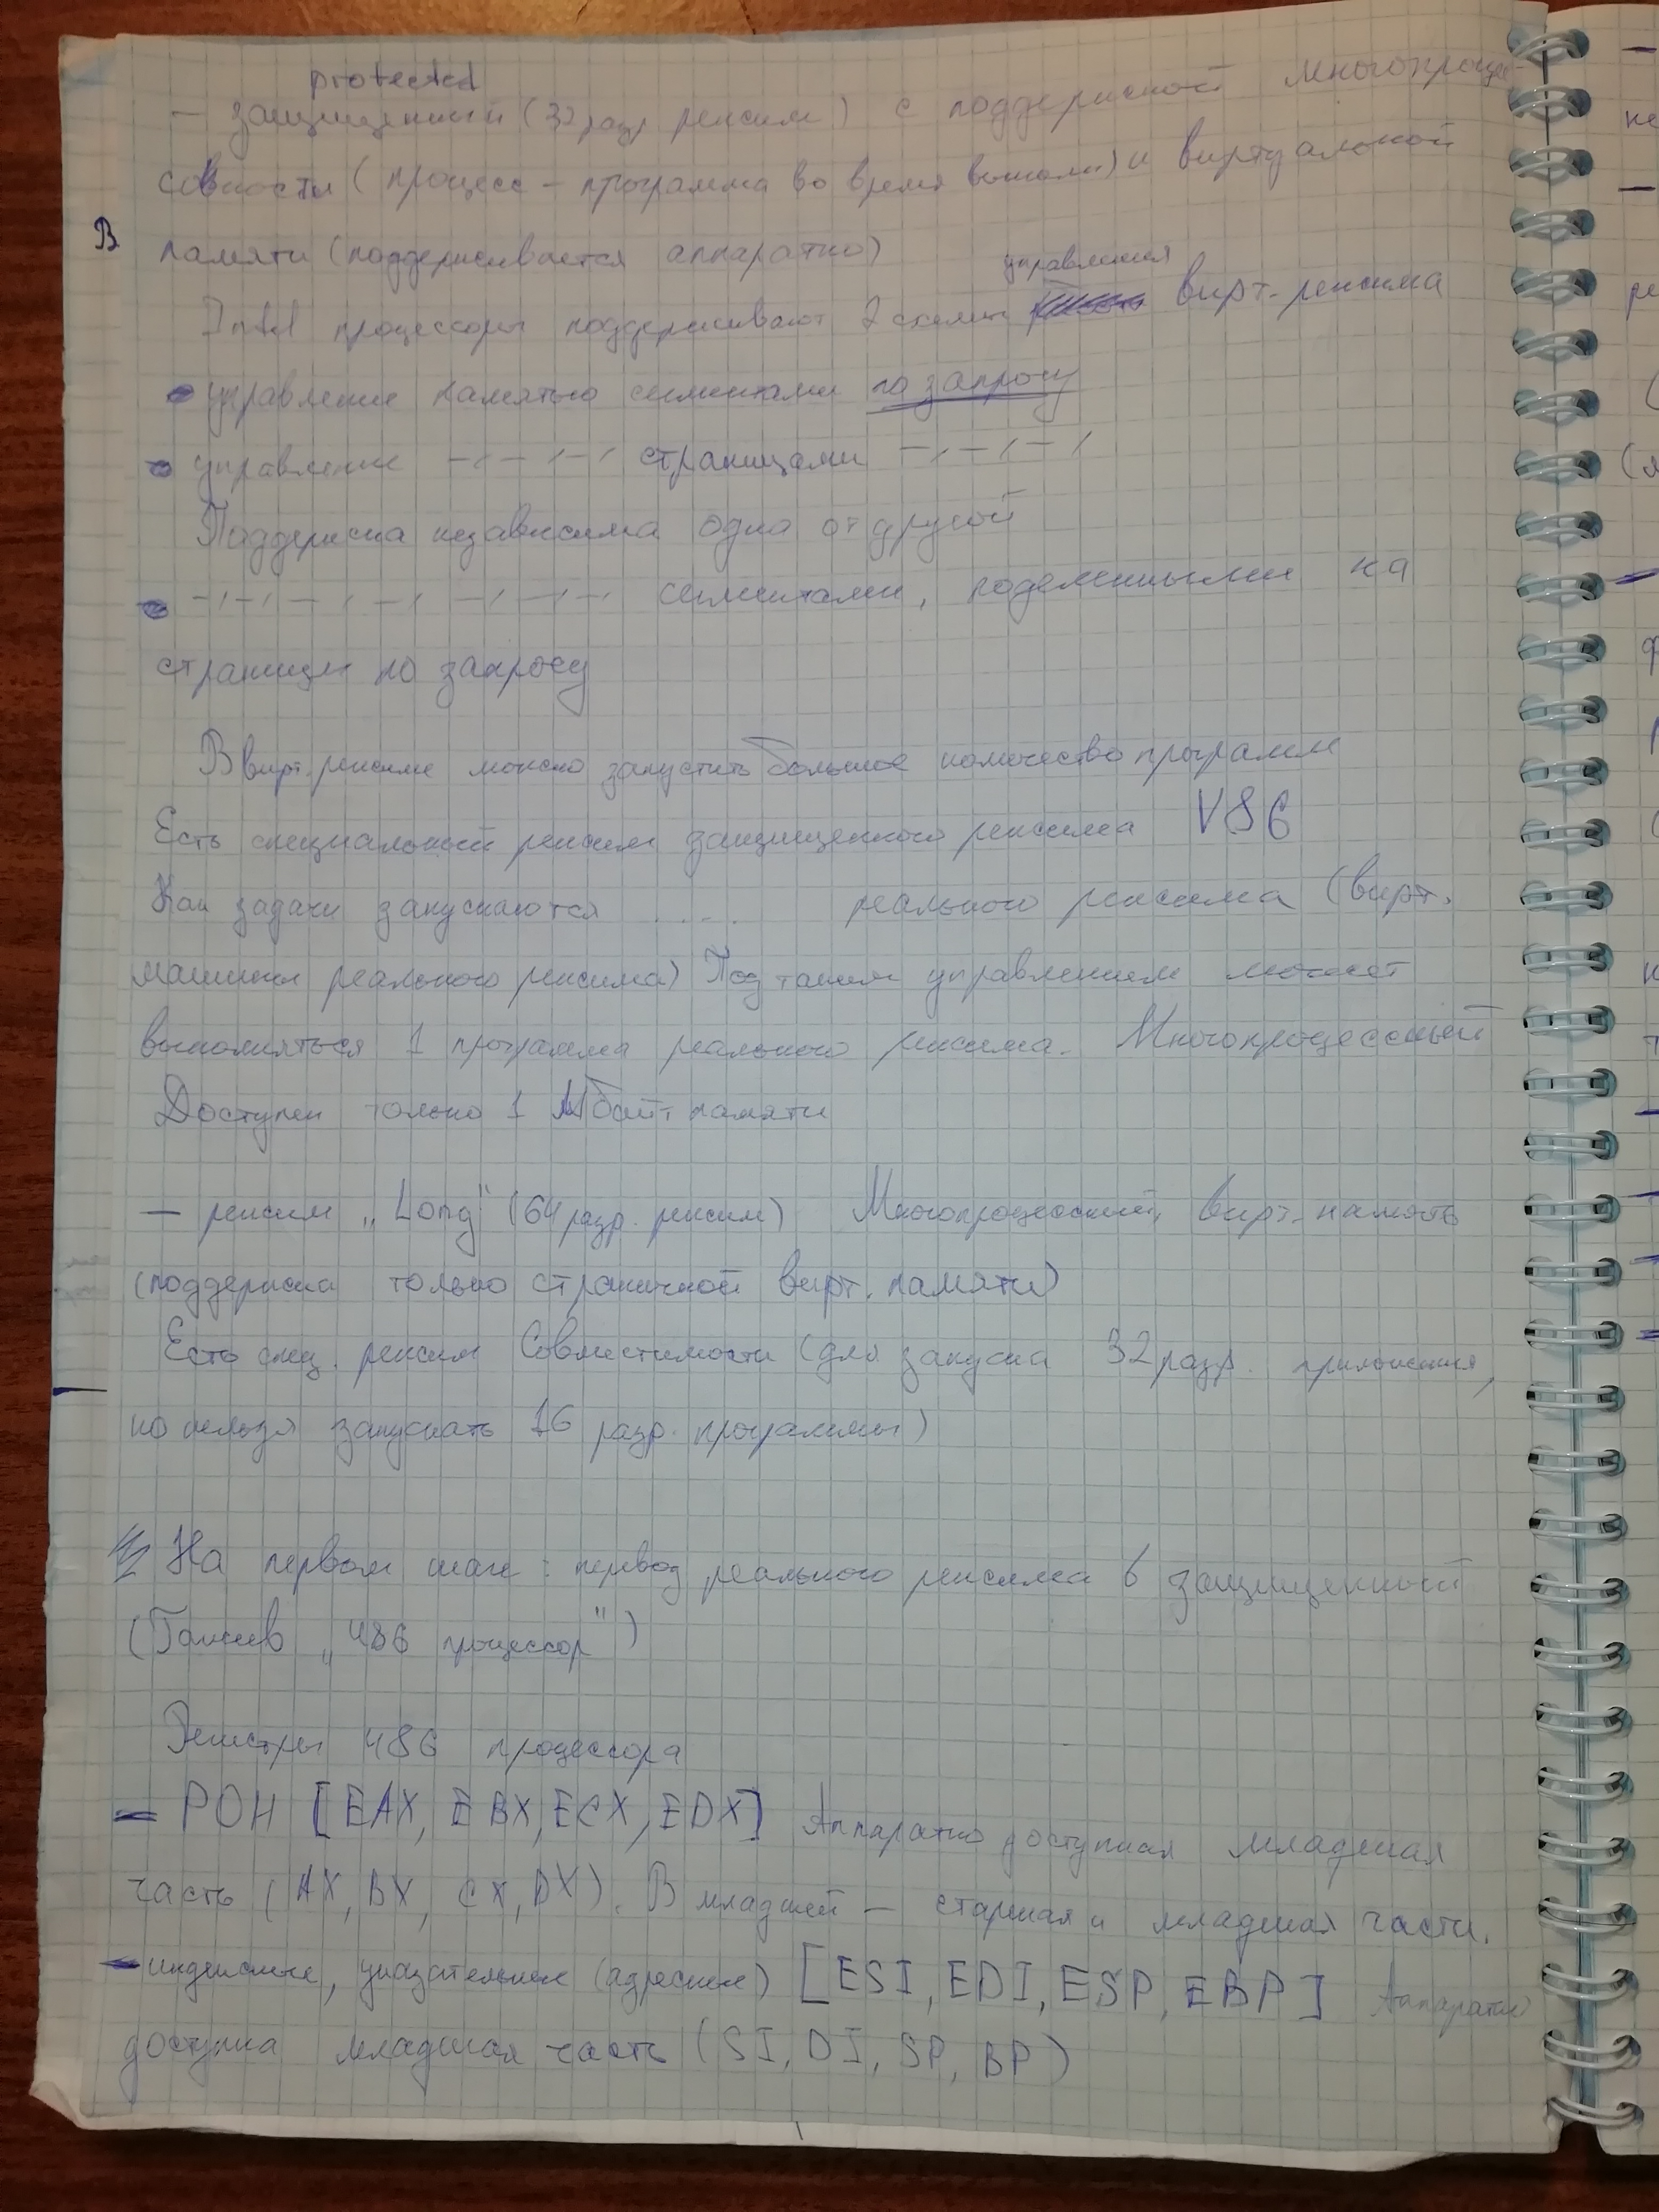 protected
— защищенный (32 разр. режим) с поддержкой многопроцес-
совности (процесс – программа во время выполн) и виртуальной
В
памяти (поддерживается аппаратно)
управления
Intel процессоры поддерживают 2 схемы вирт. режима
управление памятью сегментами по запросу
управление –/–/–/ страницами –/–/–/
Поддержка независима одна от другой
–/–/–/–/–/–/–/ сегментами, поделенными на
страницы по запросу
В вирт. режиме можно запустить большое количество программ
Есть специальный режим защищенного режима V86
Как задачи запускаются .... реального режима (вирт.
машины реального режима) Под таким управлением может
выполняться 1 программа реального режима. Многопроцессный
Доступен только 1 Мбайт памяти
— режим „Long" (64 разр. режим) Многопроцессный, вирт. память
(поддержка только страничной вирт. памяти)
Есть спец. режим Совместимости (для запуска 32 разр. приложения,
но нельзя запускать 16 разр. программы)
На первом шаге: перевод реального режима в защищенный
( „486 процессор")
Регистры 486 процессора
— РОН [EAX, EBX, ECX, EDX] Аппаратно доступная младшая
часть (AX, BX, CX, DX). В младшей — старшая и младшая части.
— индексные, указательные (адресные) [ESI, EDI, ESP, EBP] Аппаратно
доступна младшая часть (SI, DI, SP, BP)